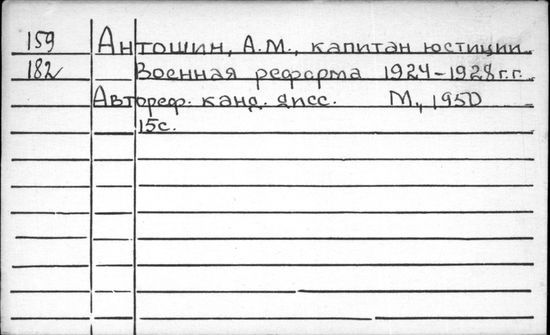 159 Антошин, А.М., капитан юстиции
182 Военная реформа 1924-1928г.г.
Автореф. канд. дисс. М., 1950
15с.